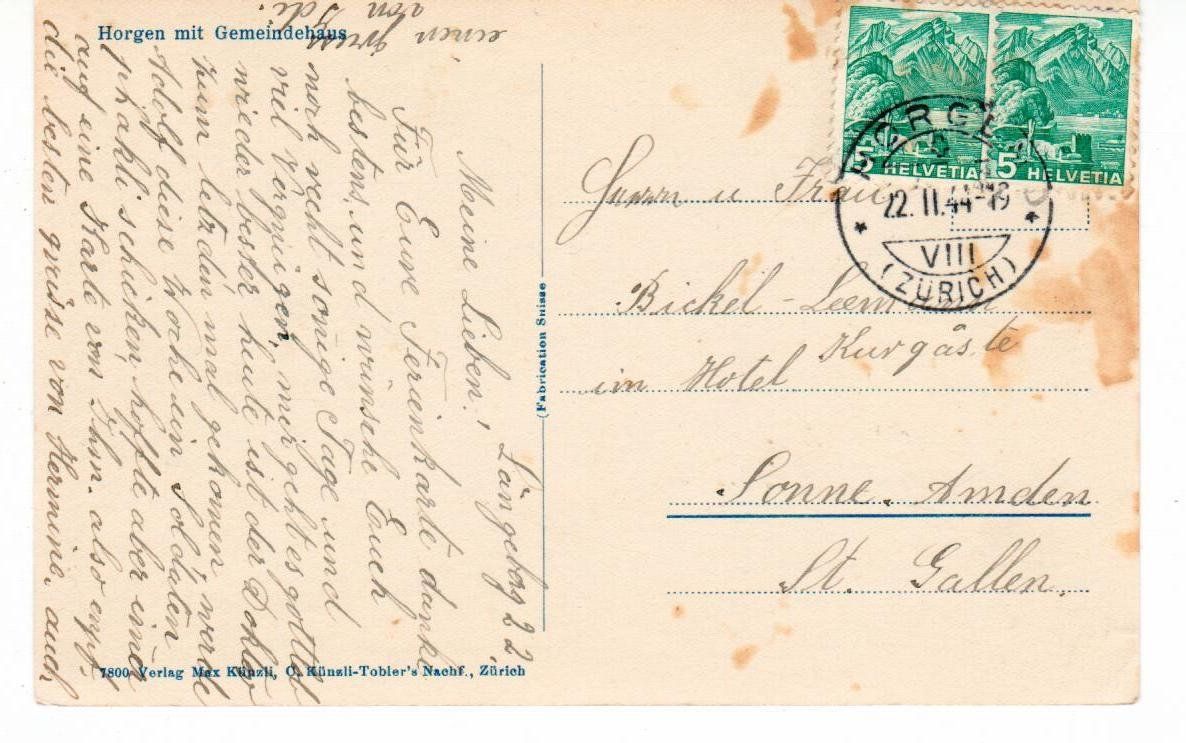 Horgen mit Gemeindehaus
Längebg 22.
Meine Lieben!
Für Eure Ferienkarte danke
bestens, und wünsche Euch
noch recht sonige Tage und
viel Vergnügen, mir geht es gottlob
wieder besser, heute ist der Doktor
zum letzden mal gekomen, werde
Adolf diese Woche ein Soldaten
päkkli schicken, hoffte aber imer
auf eine Karte von Ihm. also empf.
die besten grüsse von Hermine. auch
einen gruss
von
(Fabrication Suisse
7800 Verlag Max Künzli, C. Künzli-Tobler's Nachf., Zürich
5 HELVETIA 5 HELVETIA
HORGEN
22. II. 44-19
VIII
(ZÜRICH)
Herrn u Frau
Bickel-Leemann
Kurgäste
im Hotel
Sonne. Amden
St. Gallen.